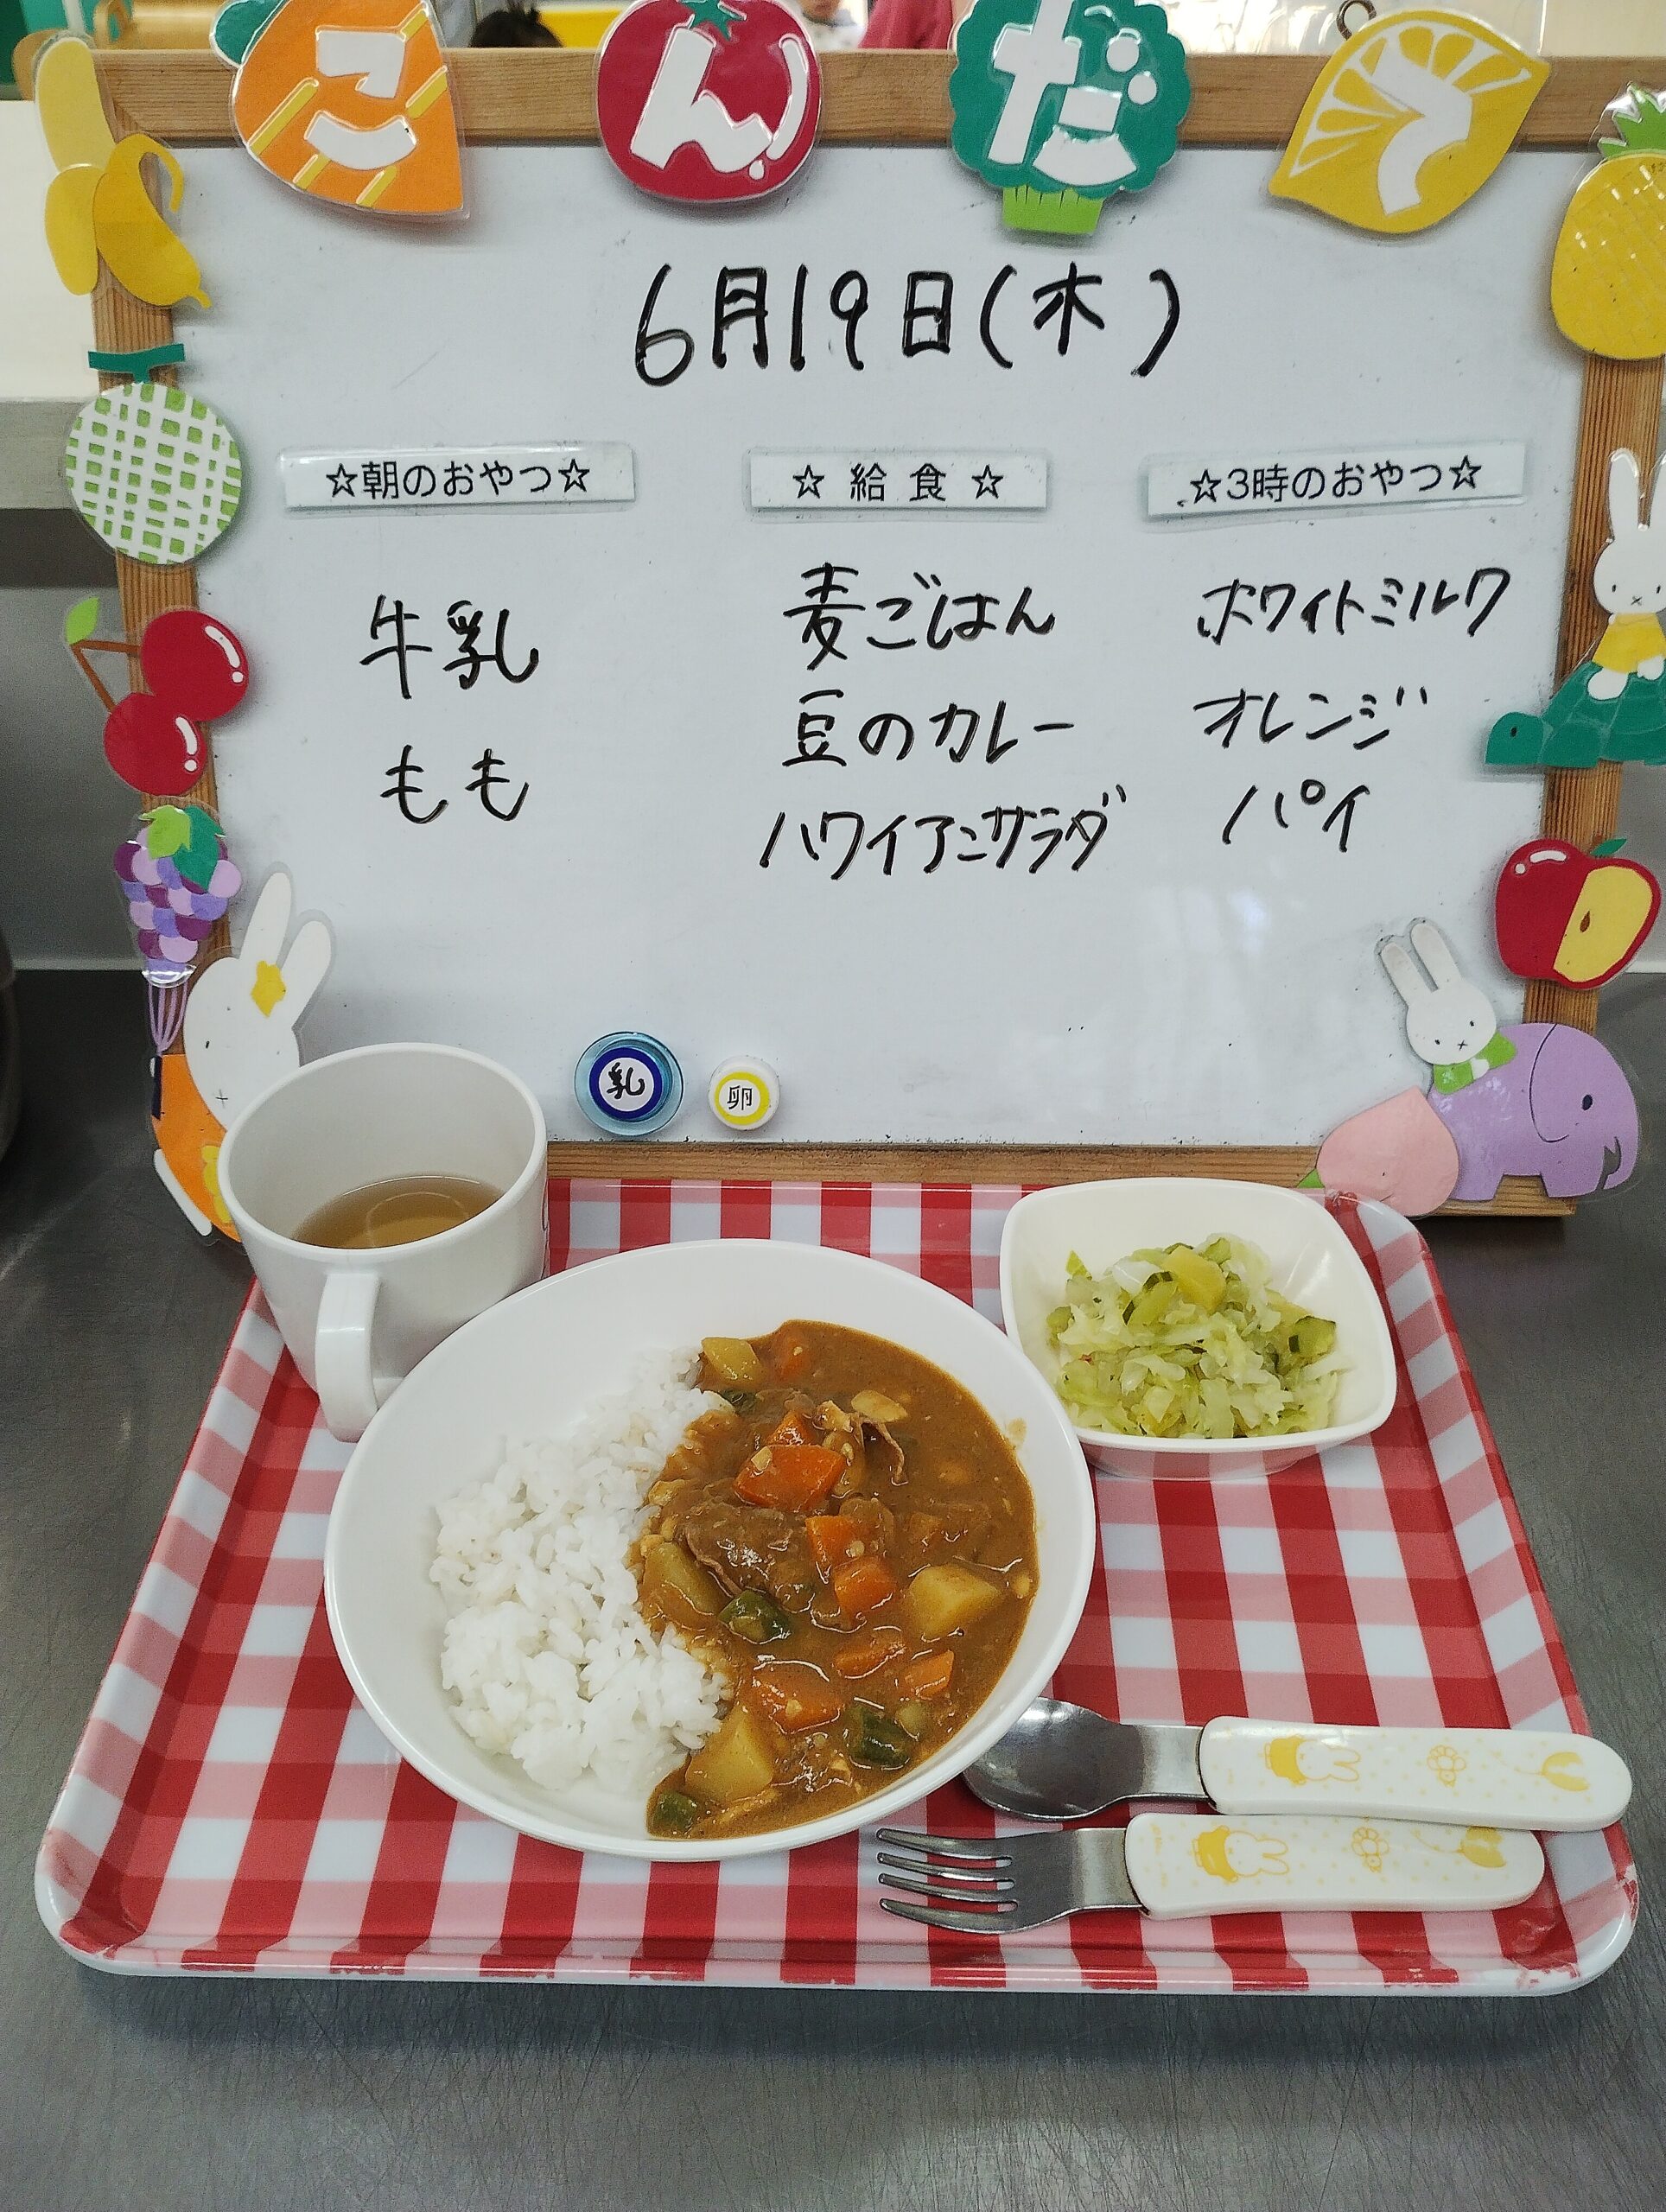 こんだて
6月19日(木)
☆朝のおやつ☆
牛乳
もも
☆給食☆
麦ごはん
豆のカレー
ハワイアンサラダ
☆3時のおやつ☆
ホワイトミルク
オレンジ
パイ
乳
卵